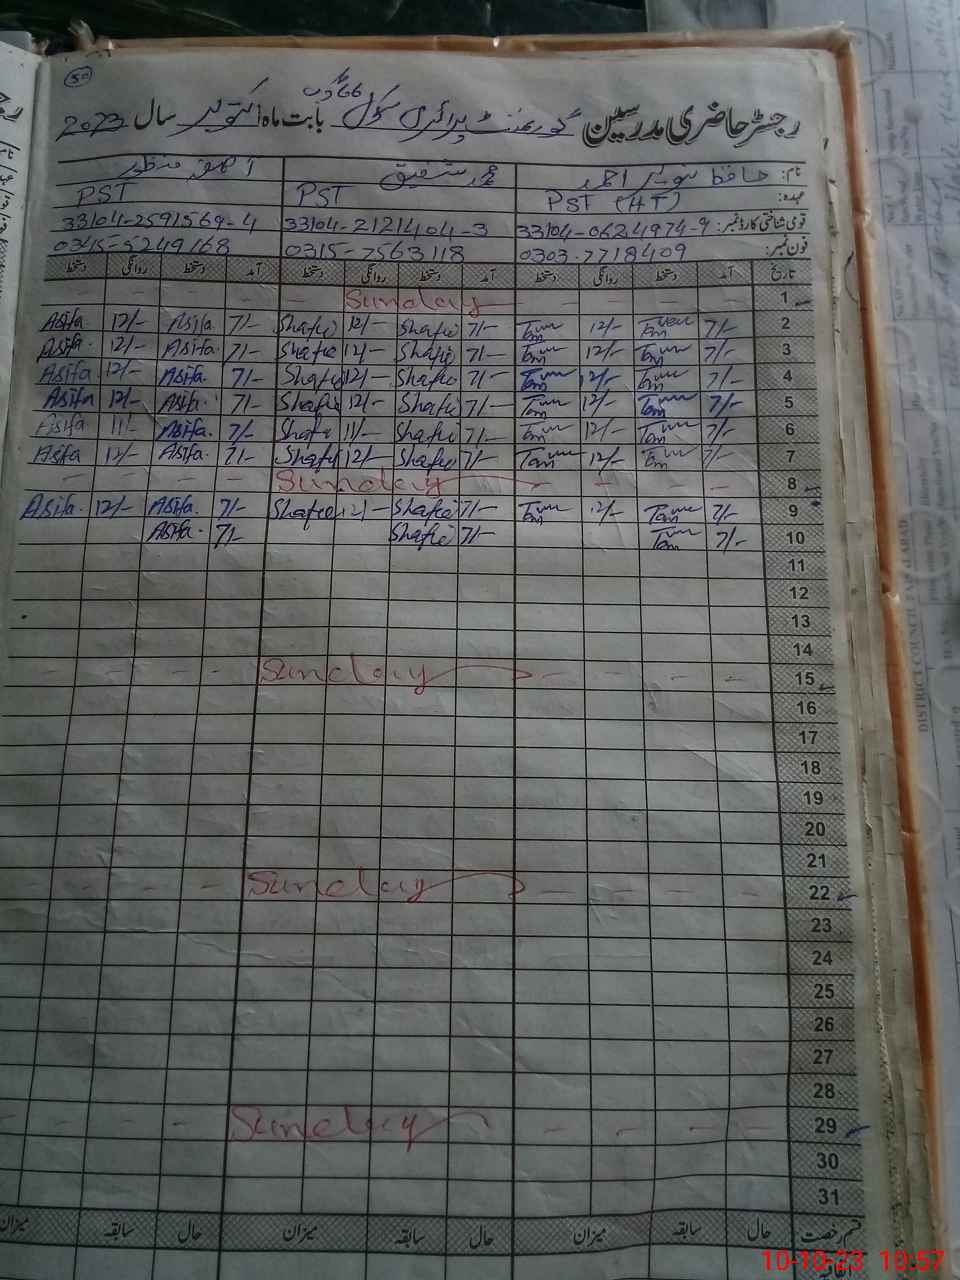 50
رجسٹر حاضری مدرسین گورنمنٹ پرائمری سکول 266 گ ب بابت ماہ اکتوبر سال 2023
نام: حافظ تنویر احمد محمد شفیق آصفہ منظور
عہدہ: PST (HT) PST PST
قومی شناختی کارڈ نمبر: 33104-0624974-9 33104-2121404-3 33104-2591569-4
فون نمبر: 0303-7718409 0315-7563118 0345-5249168
تاریخ آمد دستخط روانگی دستخط آمد دستخط روانگی دستخط آمد دستخط روانگی دستخط
1 Sunday
2 7/- 12/- 7/- Shafiq 12/- Shafiq 7/- Asifa 12/- Asifa
3 7/- 12/- 7/- Shafiq 12/- Shafiq 7/- Asifa 12/- Asifa
4 7/- 12/- 7/- Shafiq 12/- Shafiq 7/- Asifa 12/- Asifa
5 7/- 12/- 7/- Shafiq 12/- Shafiq 7/- Asifa 12/- Asifa
6 7/- 12/- 7/- Shafiq 11/- Shafiq 7/- Asifa 11/- Asifa
7 7/- 12/- 7/- Shafiq 12/- Shafiq 7/- Asifa 12/- Asifa
8 Sunday
9 7/- 12/- 7/- Shafiq 12/- Shafiq 7/- Asifa 12/- Asifa
10 7/- 7/- Shafiq 7/- Asifa
11
12
13
14
15 Sunday
16
17
18
19
20
21
22 Sunday
23
24
25
26
27
28
29 Sunday
30
31
قسم رخصت حال سابقہ میزان حال سابقہ میزان حال سابقہ میزان
اتفاقیہ
10-10-23 10:57
DISTRICT COUNCIL FAISALABAD